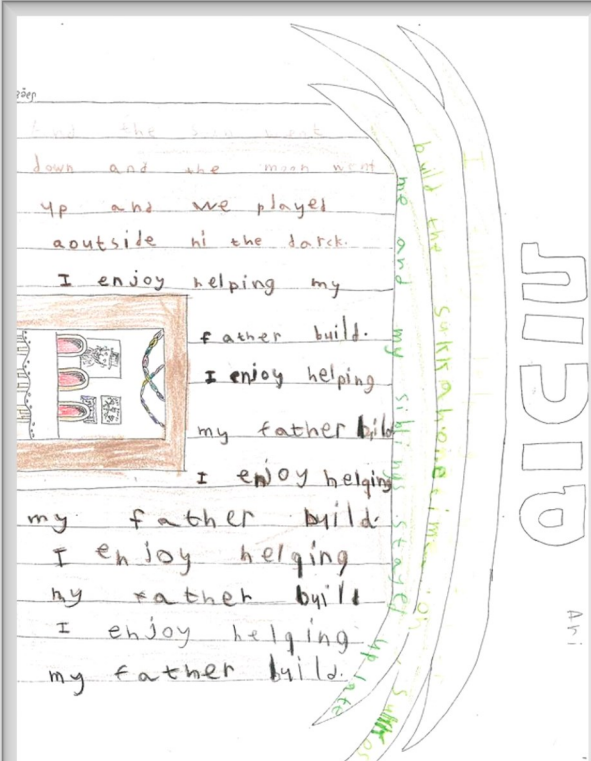 the
down and the moon went
up and we played
aoutside ni the darck.
I enjoy helping my
father build.
I enjoy helping
my father bild
I enjoy helging
my father build.
I enjoy helging
my father build
I enjoy helging
my father build.
I
build the sukka
me and my siblings stayed up late
סוכות
Ari